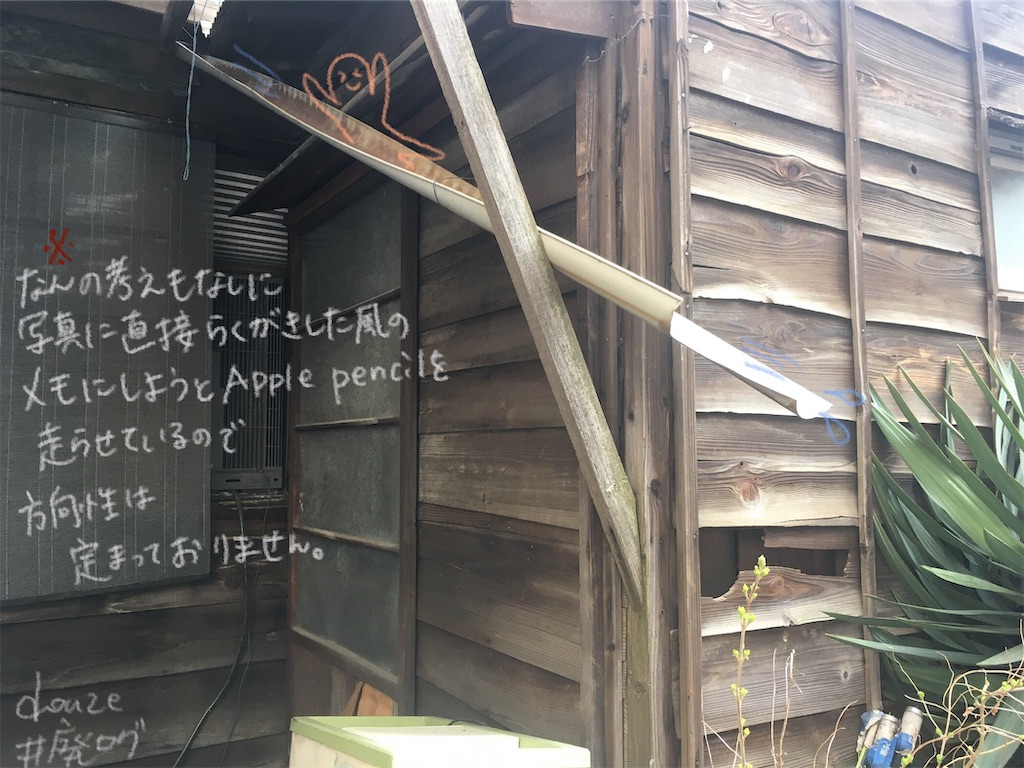 ※
なんの考えもなしに
写真に直接らくがきした風の
メモにしようとApple pencilを
走らせているので
方向性は
定まっておりません。
douze
#廃ログ